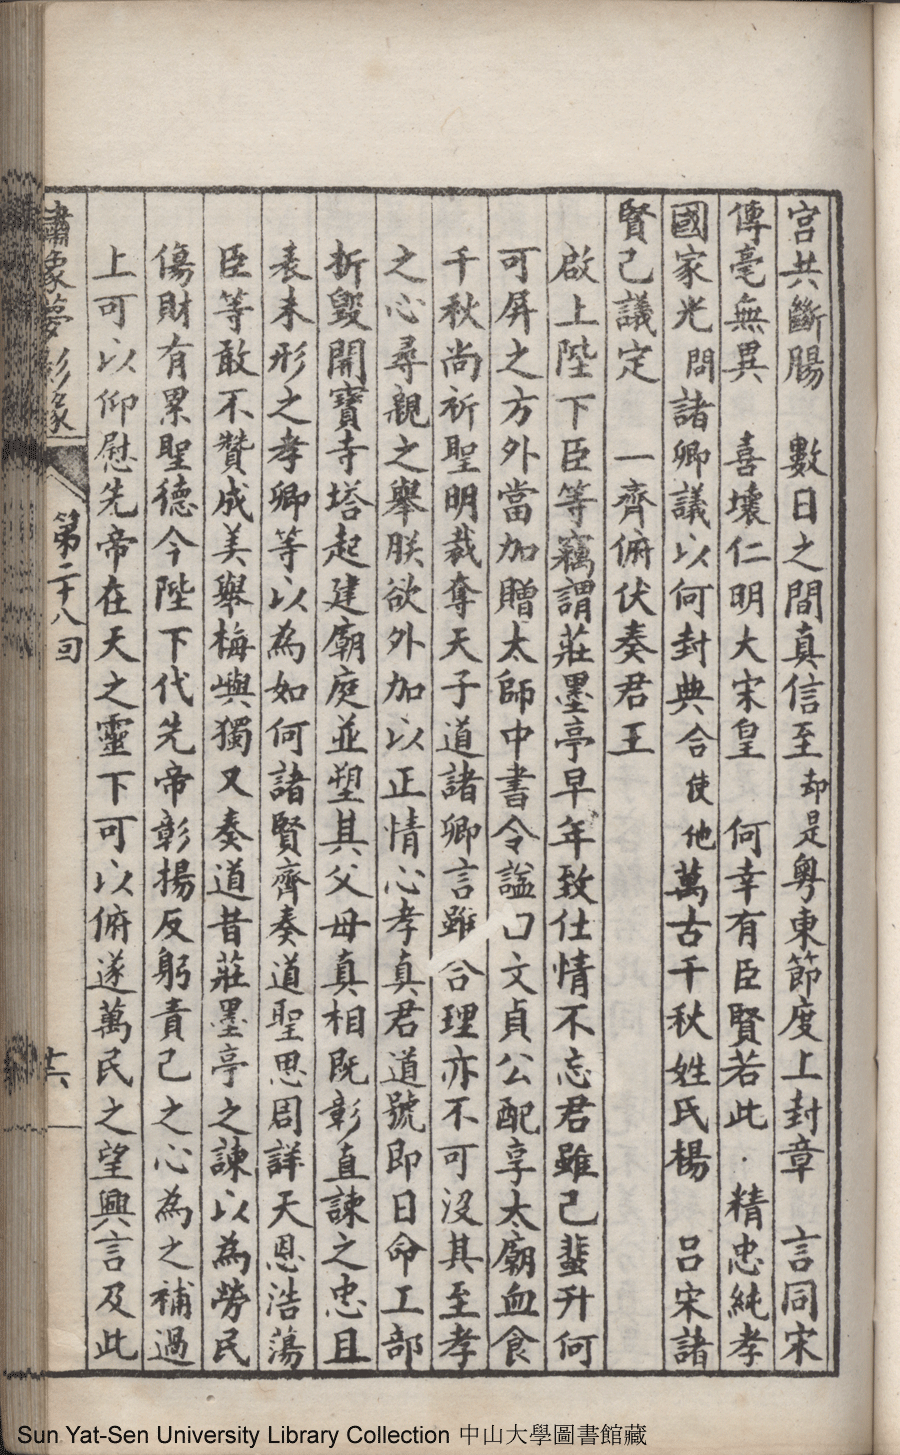 宮共斷腸　數日之間真信至　却是粵東節度上封章　言同宋
傳毫無異　喜壞仁明大宋皇　何幸有臣賢若此　精忠純孝
國家光　問諸卿議以何封典　合使他萬古千秋姓氏楊　呂宋諸
賢己議定　一齊俯伏奏君王
啟上陛下臣等竊謂莊墨亭早年致仕情不忘君雖己蜚升何
可屏之方外當加贈太師中書令諡曰文貞公配享太廟血食
千秋尚祈聖明裁奪天子道諸卿言雖合理亦不可沒其至孝
之心尋親之舉朕欲外加以正情心孝真君道號即日命工部
折毀開寶寺塔起建廟庭並塑其父母真相既彰直諫之忠且
表未形之孝卿等以為如何諸賢齊奏道聖思周詳天恩浩蕩
臣等敢不贊成美舉梅嶼獨又奏道昔莊墨亭之諫以為勞民
傷財有累聖德今陛下代先帝彰揚反躬責己之心為之補過
上可以仰慰先帝在天之靈下可以俯遂萬民之望興言及此
第二十八回
Sun Yat-Sen University Library Collection 中山大學圖書館藏